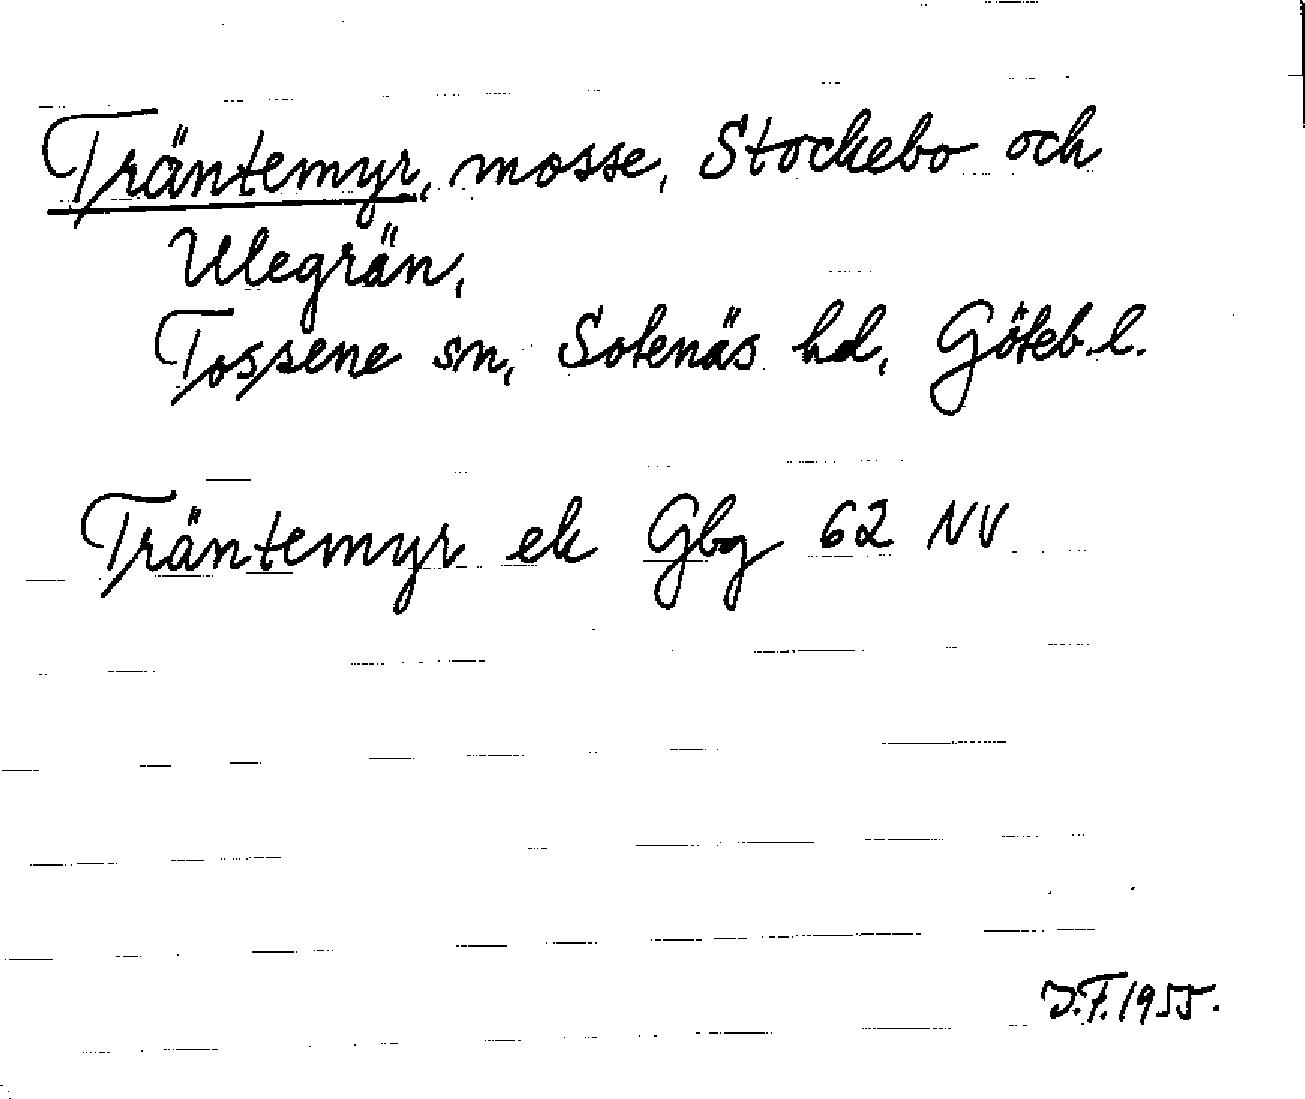 Träntemyr, mosse, Stockebo och
Ulegrän,
Tossene sn, Sotenäs hd, Göteb.l.
Träntemyr ek Gbg 62 NV
J.F.1955.